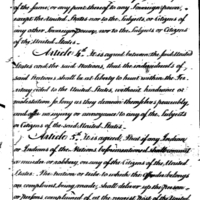 of the same, or any part thereof to any Foreign power,
except the United States nor to the Subjects or Citizens of
any other Foreign power, nor to the Subjects or Citizens
of the United States.
Article 4th. It is agreed between the said United
States and the said Nations, that the undersigned of
said Nations shall be at liberty to hunt within the Ter-
ritory ceded to the United States, without hindrance or
molestation so long as they demean themselves peaceably,
and offer no injury or annoyance to any of the Subjects or
Citizens of the said United States.
Article 5th. It is agreed, That if any Indian
or Indians of the Nations before mentioned shall commit
a murder or robbery, on any of the Citizens of the United
States. The Nation or tribe to which the offender belongs
on complaint being made, shall deliver up the person
or persons complained of, at the nearest Post of the United